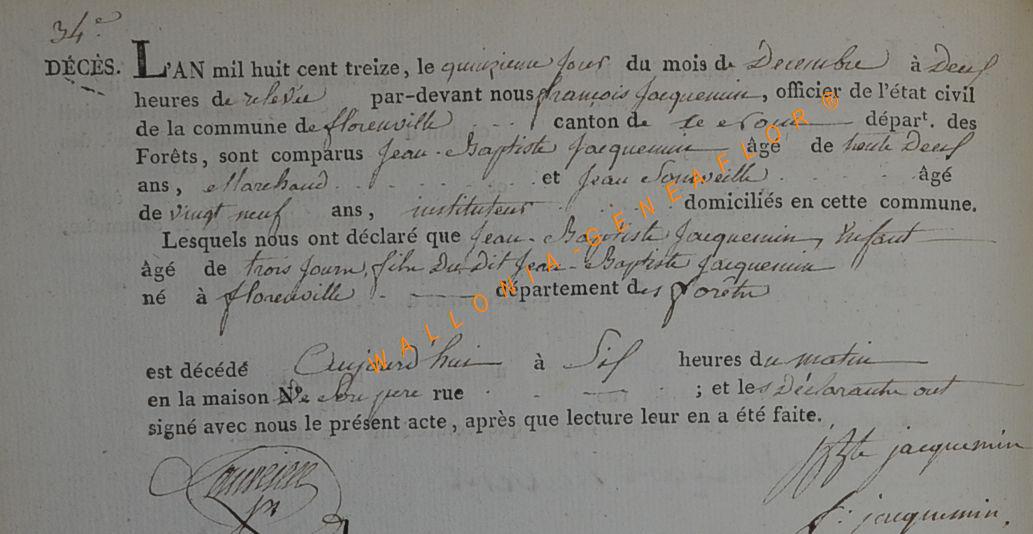 34.e
DÉCÈS. L'AN mil huit cent treize, le quinzieme jour du mois de Décembre à Deux
heures de relevée par-devant nous françois Jacquemin, officier de l'état civil
de la commune de florenville canton de départ. des
Forêts, sont comparus Jean-Baptiste Jacquemin âgé de trente Deux
ans, Marchand et Jean âgé
de vingt neuf ans, instituteur domiciliés en cette commune.
Lesquels nous ont déclaré que Jean-Baptiste Jacquemin, Enfant
âgé de trois jours, fils Du dit Jean-Baptiste Jacquemin
né à florenville département des forêts
est décédé Aujourd'hui à Six heures du matin
en la maison De Son pere rue ; et les Déclarants ont
signé avec nous le présent acte, après que lecture leur en a été faite.
jacquemin
f: jacquemin.
WALLONIA-GENEAFLOR®